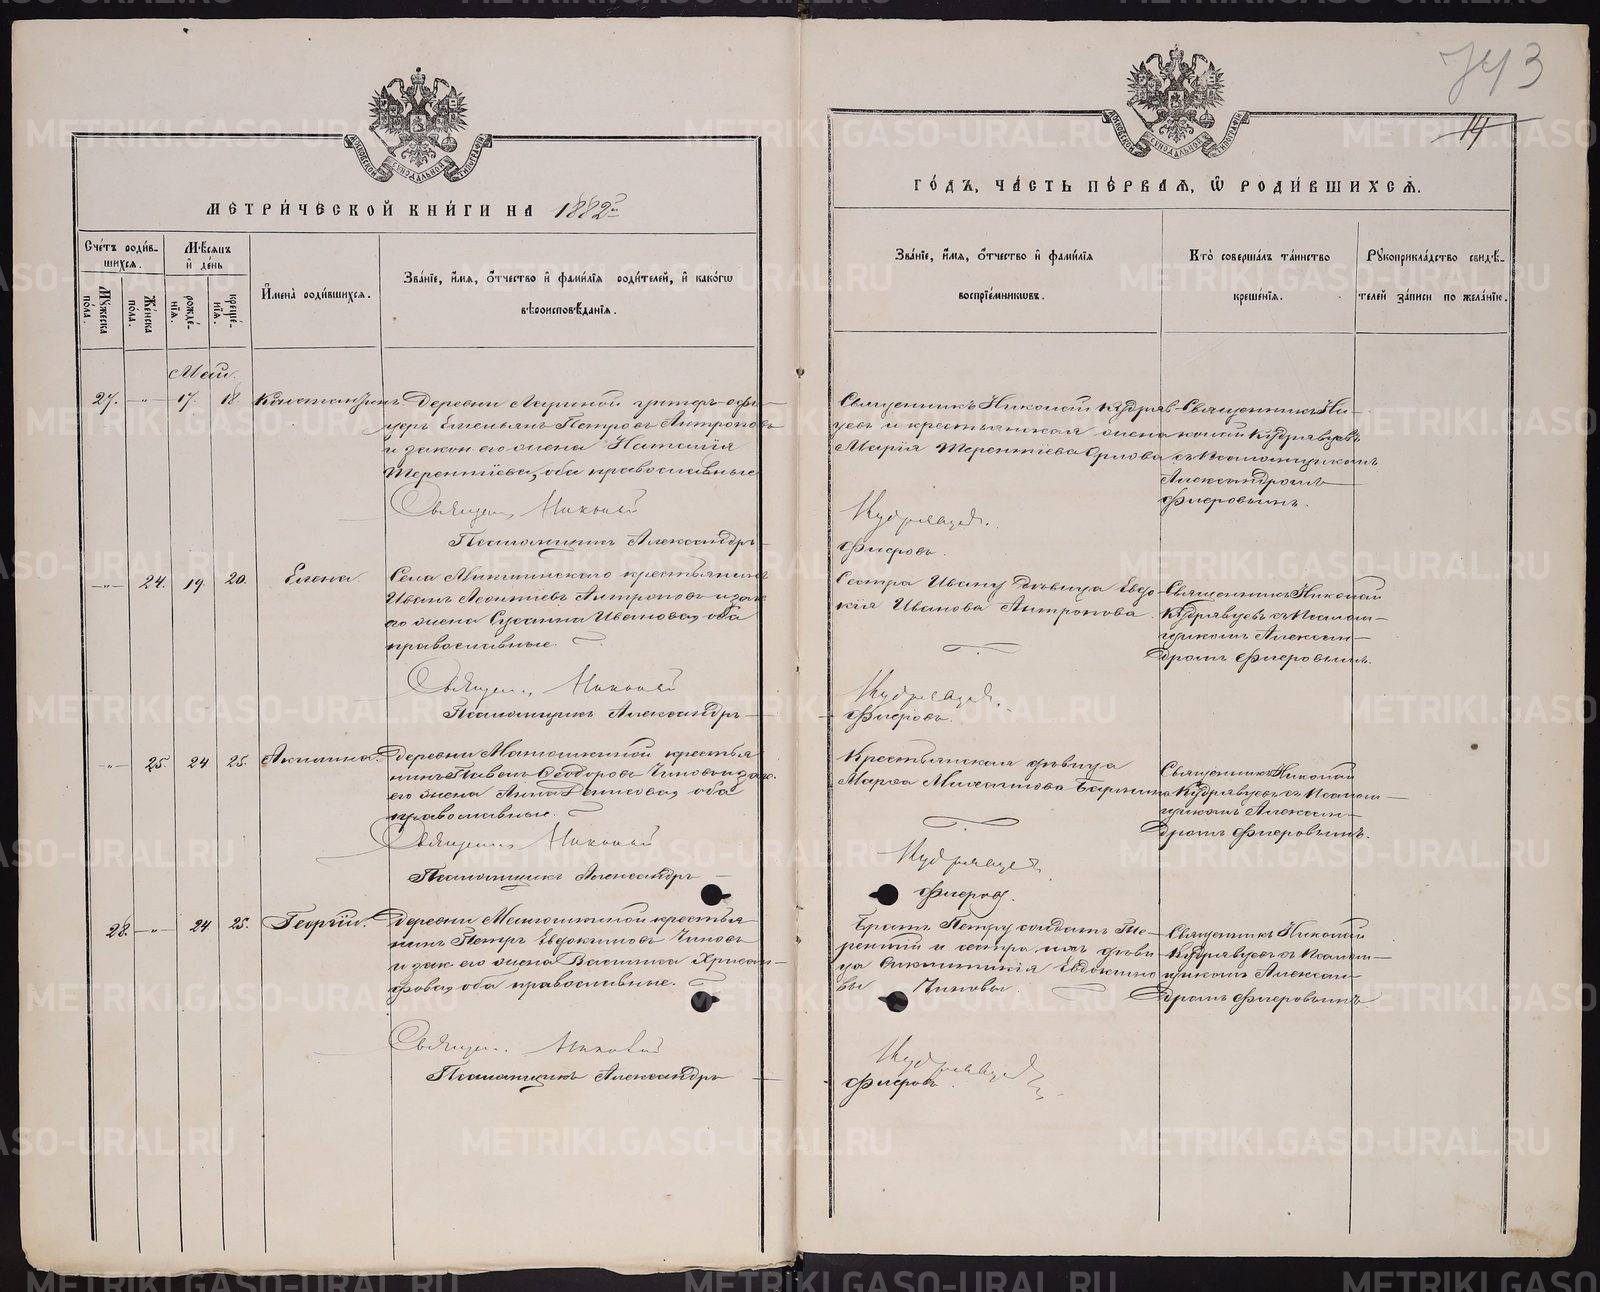 743
14
МЕТРИ́ЧЕСКОЙ КНИ́ГИ НА 1882й
ГО́ДЪ, ЧА́СТЬ ПЕ́РВАЯ, Ѡ РОДИ́ВШИХСЯ.
Сче́тъ роди́в-
шихся.
Му́жеска
по́ла.
Же́нска
по́ла.
Мѣ́сяцъ
и де́нь
рожде́-
нїя.
креще́-
нїя.
Имена̀ роди́вшихся.
Зва́нїе, и́мя, о́тчество и фами́лїя роди́телей, и како́гѡ
вѣроисповѣ́данїя.
Зва́нїе, и́мя, о́тчество и фами́лїя
воспрїе́мникѡвъ.
Кто̀ соверша́лъ та́инство
креще́нїя.
Рукоприкла́дство свидѣ́-
телей за́писи по жела́нїю.
Май.
27. -"- 17. 18 Константинъ.
Деревни унтеръ-офи-
церъ Емельянъ Петровъ Антроповъ
и закон его жена Наталія
Терентіева, оба православные
Священ. Николай
Псаломщикъ Александръ
Священникъ Николай Кудряв-
цевъ и крестьянская жена
Марія Терентіева Орлова
Кудрявцев.
Флеровъ.
Священникъ Ни-
колай Кудрявцевъ
съ Псаломщикомъ
Александромъ
Флеровымъ.
-"- 24. 19. 20. Елена.
Села Микшинскаго крестьянинъ
Иванъ Леонтіевъ Антроповъ и зак
его жена Сусанна Иванова, оба
православные.
Священ., Николай
Псаломщикъ Александръ
Сестра Ивану дѣвица Евдо-
кія Иванова Антропова.
Кудрявцев.
Флеровъ.
Священникъ Николай
Кудрявцевъ съ Псалом-
щикомъ Алексан-
дромъ Флеровымъ.
-"- 25. 24 25. Акилина.
Деревни Матюшкиной крестья
нинъ Павелъ Ѳеодоровъ Чиновъ и зако.
его жена Анна Денисова, оба
православные.
Священник Николай
Псаломщикъ Александръ
Крестьянская дѣвица
Марѳа Михаилова
Кудрявцев
Флеровъ.
Священникъ Николай
Кудрявцевъ съ Псалом-
щикомъ Алексан-
дромъ Флеровымъ.
28. -"- 24 25. Георгій.
Деревни Матюшкиной крестья
нинъ Петръ Евдокимовъ Чиновъ
и зак его жена Василиса Хрисан-
фова, оба православные.
Священ. Николай
Псаломщикъ Александръ
Братъ Петру солдатъ Те-
рентій и сестра ихъ дѣви-
ца Евдокимо
вы Чиновы.
Кудрявцев
Флеровъ.
Священникъ Николай
Кудрявцевъ съ Псалом-
щикомъ Алексан-
дромъ Флеровымъ
METRIKI.GASO-URAL.RU